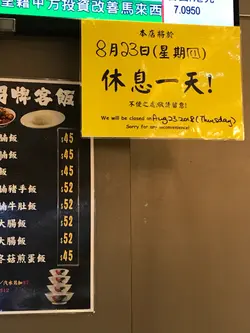 籍中方投資改善馬來西
7.0950
本店將於
8月23日(星期四)
休息一天!
不便之處敬請留意!
We will be closed on Aug 23. 2018 (Thursday)
Sorry for any inconvenience!
牌客飯
飯 $45
飯 $45
飯 $45
豬手飯 $52
牛肚飯 $52
大腸飯 $52
大腸飯 $45
冬菇煎蛋飯 $45